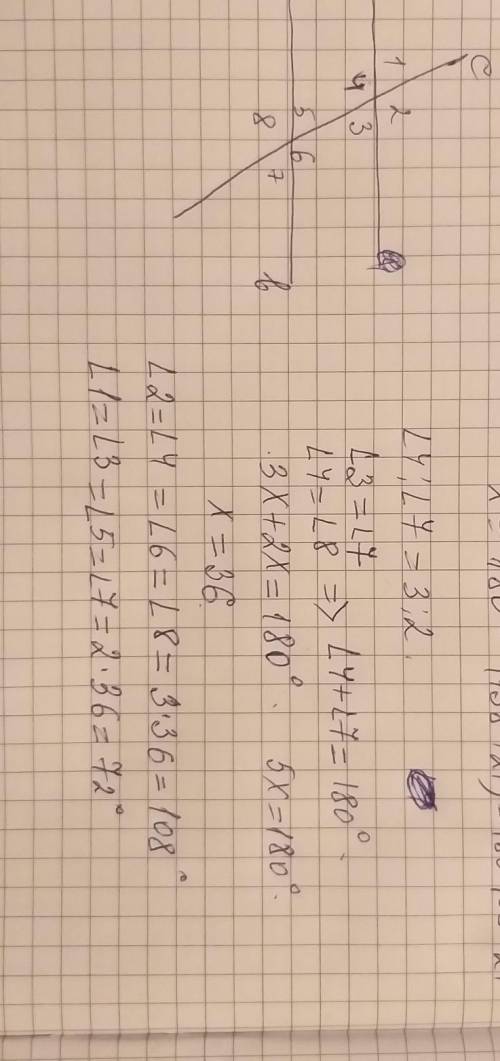 c
1
2
4
3
5
6
8
7
b
∠4:∠7 = 3:2.
∠3 = ∠7
∠4 = ∠8 => ∠4+∠7 = 180°.
3x+2x = 180°. 5x = 180°.
x = 36
∠2 = ∠4 = ∠6 = ∠8 = 3·36 = 108°
∠1 = ∠3 = ∠5 = ∠7 = 2·36 = 72°